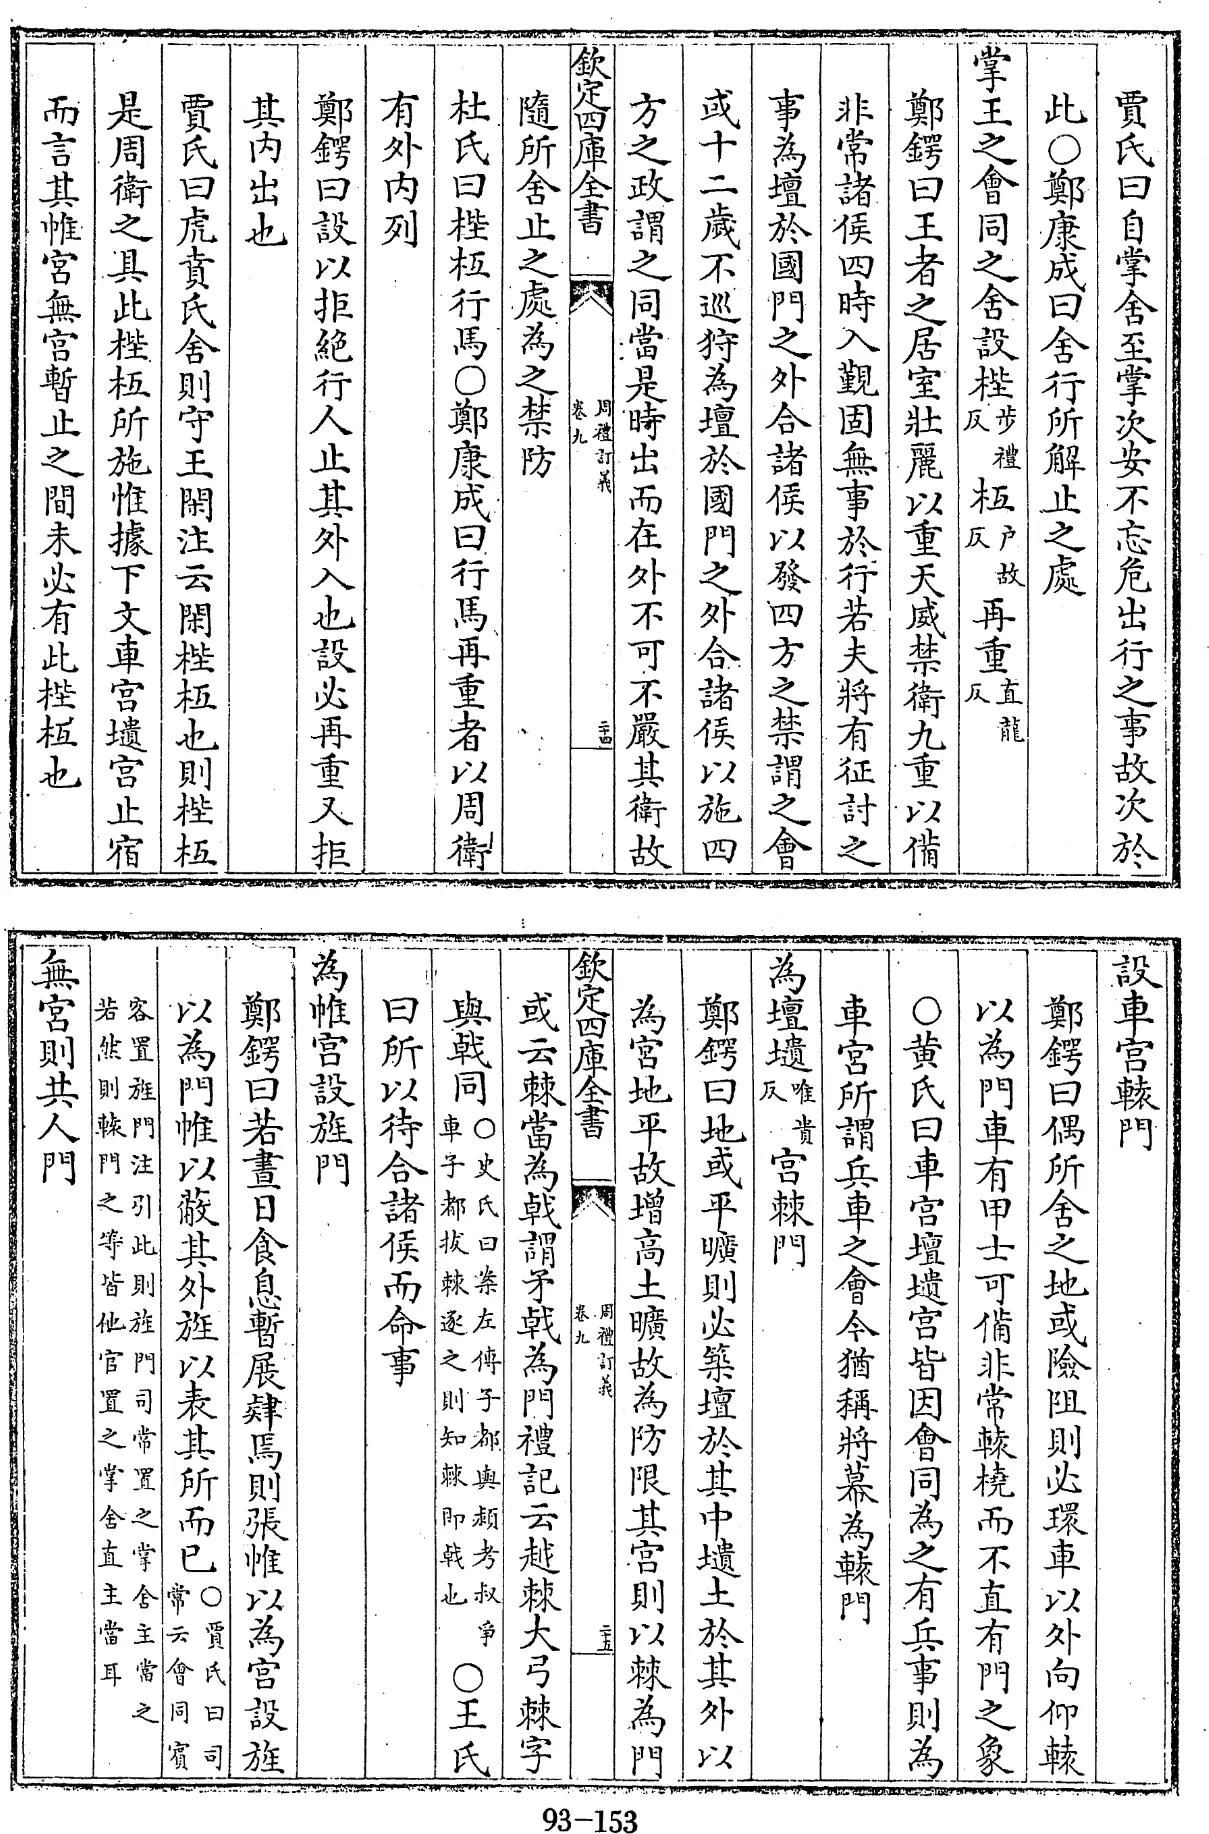 賈氏曰自掌舍至掌次安不忘危出行之事故次於
此○鄭康成曰舍行所解止之處
掌王之會同之舍設梐步禮反枑戶故反再重直龍反
鄭鍔曰王者之居室壯麗以重天威禁衛九重以備
非常諸侯四時入覲固無事於行若夫將有征討之
事為壇於國門之外合諸侯以發四方之禁謂之會
或十二歲不巡狩為壇於國門之外合諸侯以施四
方之政謂之同當是時出而在外不可不嚴其衛故
欽定四庫全書
周禮訂義
卷九
二十四
隨所舍止之處為之禁防
杜氏曰梐枑行馬○鄭康成曰行馬再重者以周衛
有外內列
鄭鍔曰設以拒絕行人止其外入也設必再重又拒
其內出也
賈氏曰虎賁氏舍則守王閑注云閑梐枑也則梐枑
是周衛之具此梐枑所施惟據下文車宮壝宮止宿
而言其帷宮無宮暫止之間未必有此梐枑也
設車宮轅門
鄭鍔曰偶所舍之地或險阻則必環車以外向仰轅
以為門車有甲士可備非常轅橈而不直有門之象
○黃氏曰車宮壇壝宮皆因會同為之有兵事則為
車宮所謂兵車之會今猶稱將幕為轅門
為壇壝唯貴反宮棘門
鄭鍔曰地或平曠則必築壇於其中壝土於其外以
為宮地平故增高土曠故為防限其宮則以棘為門
欽定四庫全書
周禮訂義
卷九
二十五
或云棘當為戟謂矛戟為門禮記云越棘大弓棘字
與戟同○史氏曰案左傳子都與潁考叔爭車子都拔棘逐之則知棘即戟也○王氏
曰所以待合諸侯而命事
為帷宮設旌門
鄭鍔曰若晝日食息暫展肆焉則張帷以為宮設旌
以為門帷以蔽其外旌以表其所而已○賈氏曰司常云會同賓
客置旌門注引此則旌門司常置之掌舍主當之
若然則轅門之等皆他官置之掌舍直主當耳
無宮則共人門
93-153